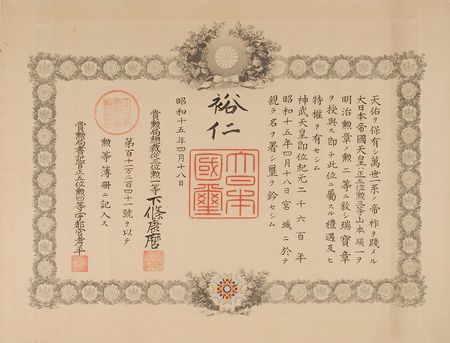 天佑ヲ保有シ萬世一系ノ帝祚ヲ踐メル
大日本帝國天皇ハ正五位勲三等山本 一ヲ
明治勲章ノ勲二等ニ敘シ瑞寶章
ヲ授與ス即チ此位ニ屬スル禮遇及ヒ
特權ヲ有セシム
神武天皇即位紀元二千六百年
昭和十五年四月十八日宮城ニ於テ
親ラ名ヲ署シ璽ヲ鈐セシム
裕仁
大日本
國璽
昭和十五年四月十八日
賞勲局總裁從三位勲一等下條康麿
第百十二万二百四十一號ヲ以テ
勲等簿册ニ記入ス
賞勲局書記官正五位勲四等宇都宮孝平